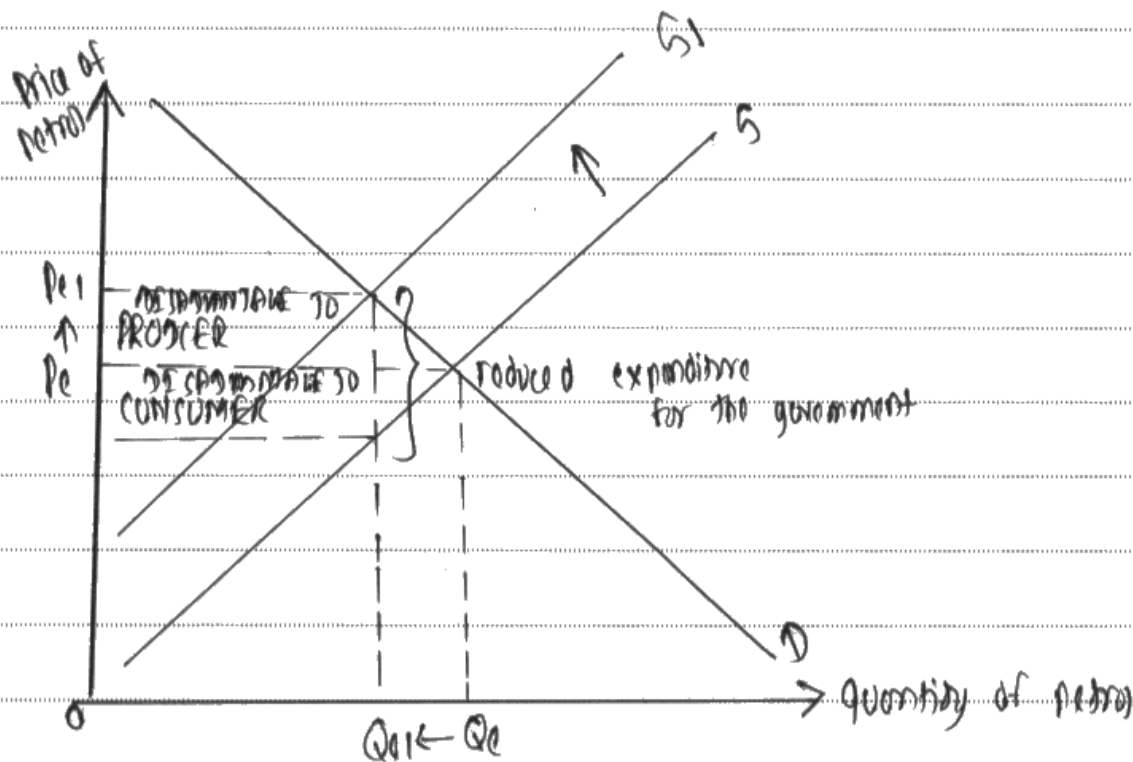 S1
Price of
petrol
S
Pe1
DISADVANTAGE TO
PRODCER
Pe
DISADVANTAGE TO
CONSUMER
reduced expenditure
for the government
D
0
Quantity of petrol
Qe1 ← Qe